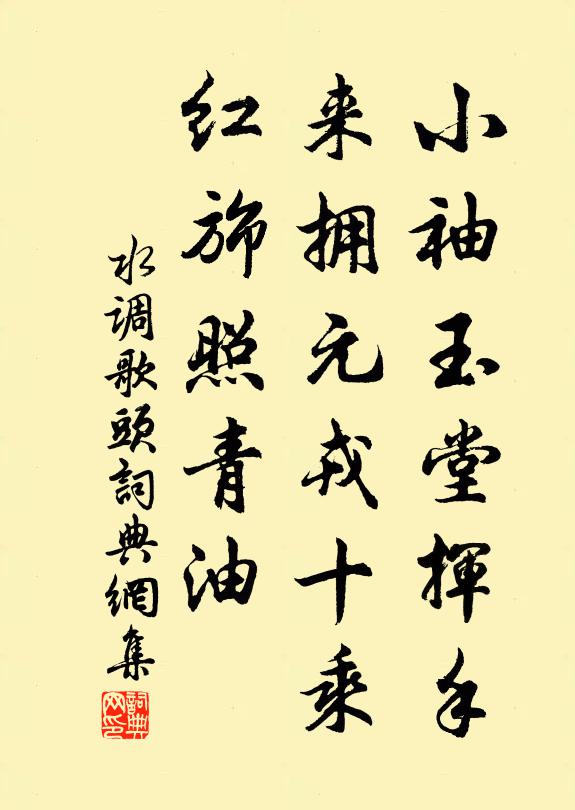 小袖玉堂揮手
来拥元戎十乘
红旆照青油
水调歌頭詞典網集
詞典网印